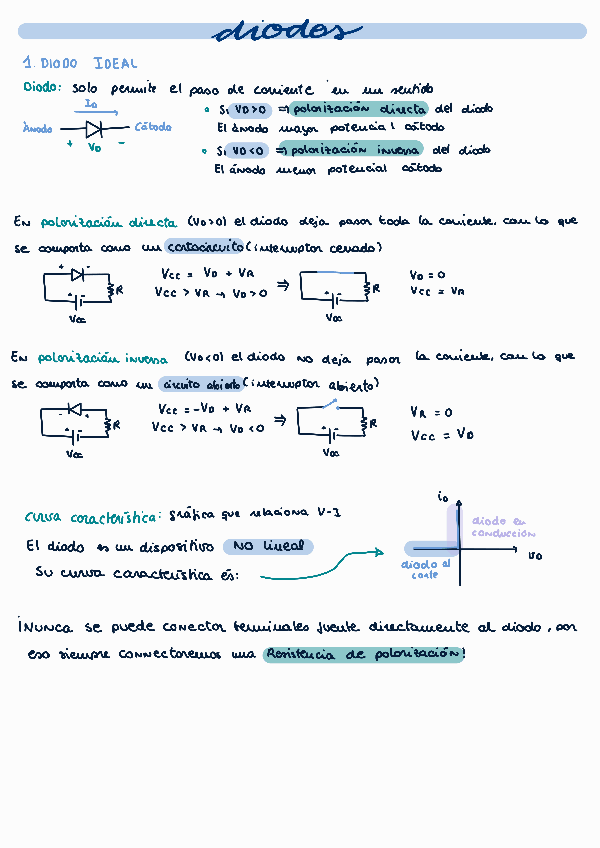 diodos
1. DIODO IDEAL
Diodo: solo permite el paso de corriente en un sentido
ID
Ánodo
Cátodo
+ VD -
• Si VD>0 ⇒ polarización directa del diodo
El ánodo mayor potencial cátodo
• Si VD<0 ⇒ polarización inversa del diodo
El ánodo menor potencial cátodo
En polarización directa (VD>0) el diodo deja pasar toda la corriente, con lo que
se comporta como un cortocircuito (interruptor cerrado)
+ -
R
+ -
Vcc
Vcc = VD + VR
Vcc > VR → VD > 0
⇒
R
+ -
Vcc
VD = 0
Vcc = VR
En polarización inversa (VD<0) el diodo no deja pasar la corriente, con lo que
se comporta como un circuito abierto (interruptor abierto)
- +
R
+ -
Vcc
Vcc = -VD + VR
Vcc > VR → VD < 0
⇒
R
+ -
Vcc
VR = 0
Vcc = VD
Curva característica: gráfica que relaciona V-I
El diodo es un dispositivo NO lineal
Su curva característica es:
iD
diodo en
conducción
vD
diodo al
corte
¡Nunca se puede conectar terminales fuente directamente al diodo, por
eso siempre connectaremos una Resistencia de polarización!